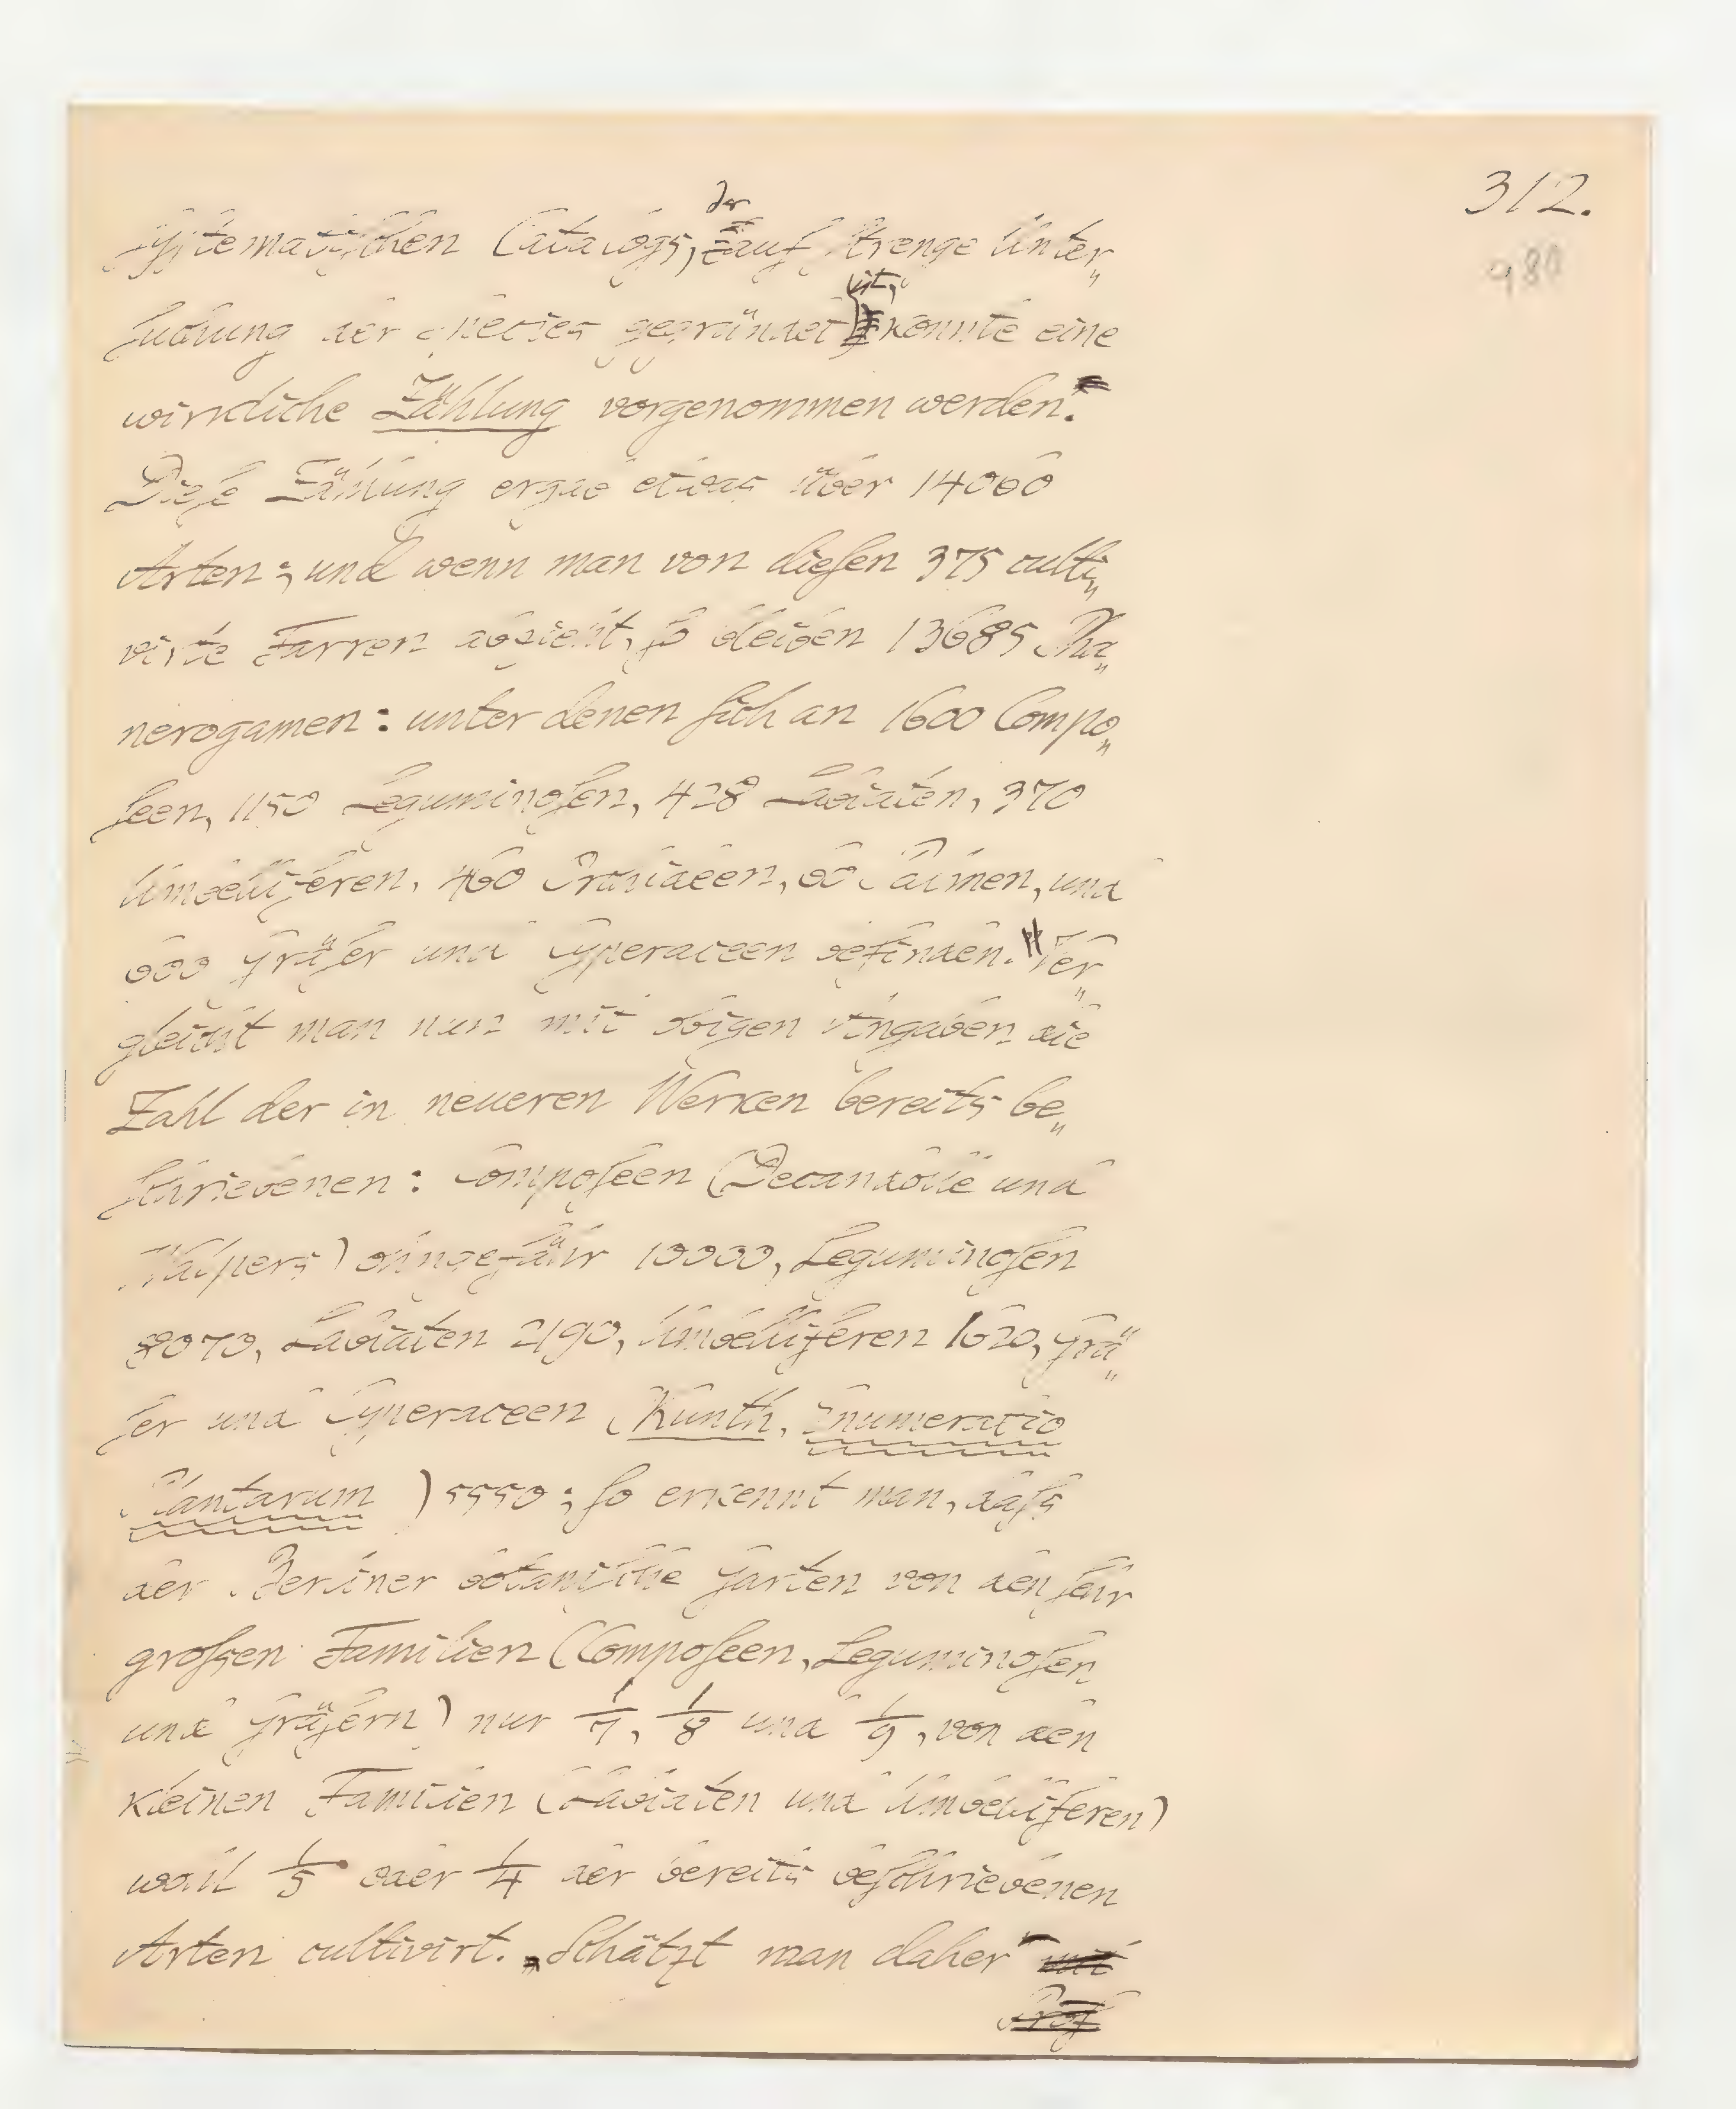 312.
980
der
ſyſtematiſchen Catalogs, auf ſtrenge Unter„
iſt,
ſuchung der Species gegründet konnte eine
wirkliche Zählung vorgenommen werden.
Dieſe Zählung ergab etwas über 14060
Arten; und wenn man von dieſen 375 culti„
virte Farren abzieht, ſo bleiben 13685 Pha„
nerogamen: unter denen ſich an 1600 Compo„
ſeen, 1150 Leguminoſen, 428 Labiaten, 370
Umbelliferen, 460 Orchideen, 60 Palmen, und
600 Gräſer und Cyperaceen befinden. Ver„
gleicht man nun mit obigen Angaben die
Zahl der in neueren Werken bereits be„
ſchriebenen: Compoſeen (Decandolle und
Walpers) ohngefähr 10000, Leguminoſen
8070, Labiaten 2190, Umbelliferen 1620, Grä„
ſer und Cyperaceen (Kunth, Enumeratio
Plantarum) 5550; ſo erkennt man, daſs
der Berliner botaniſche Garten von den ſehr
groſsen Familien (Compoſeen, Leguminoſen
und Gräſern) nur 1/7, 1/8 und 1/9, von den
kleinen Familien (Labiaten und Umbelliferen)
wohl 1/5 oder 1/4 der bereits beſchriebenen
Arten cultivirt. Schätzt man daher mit
Prof